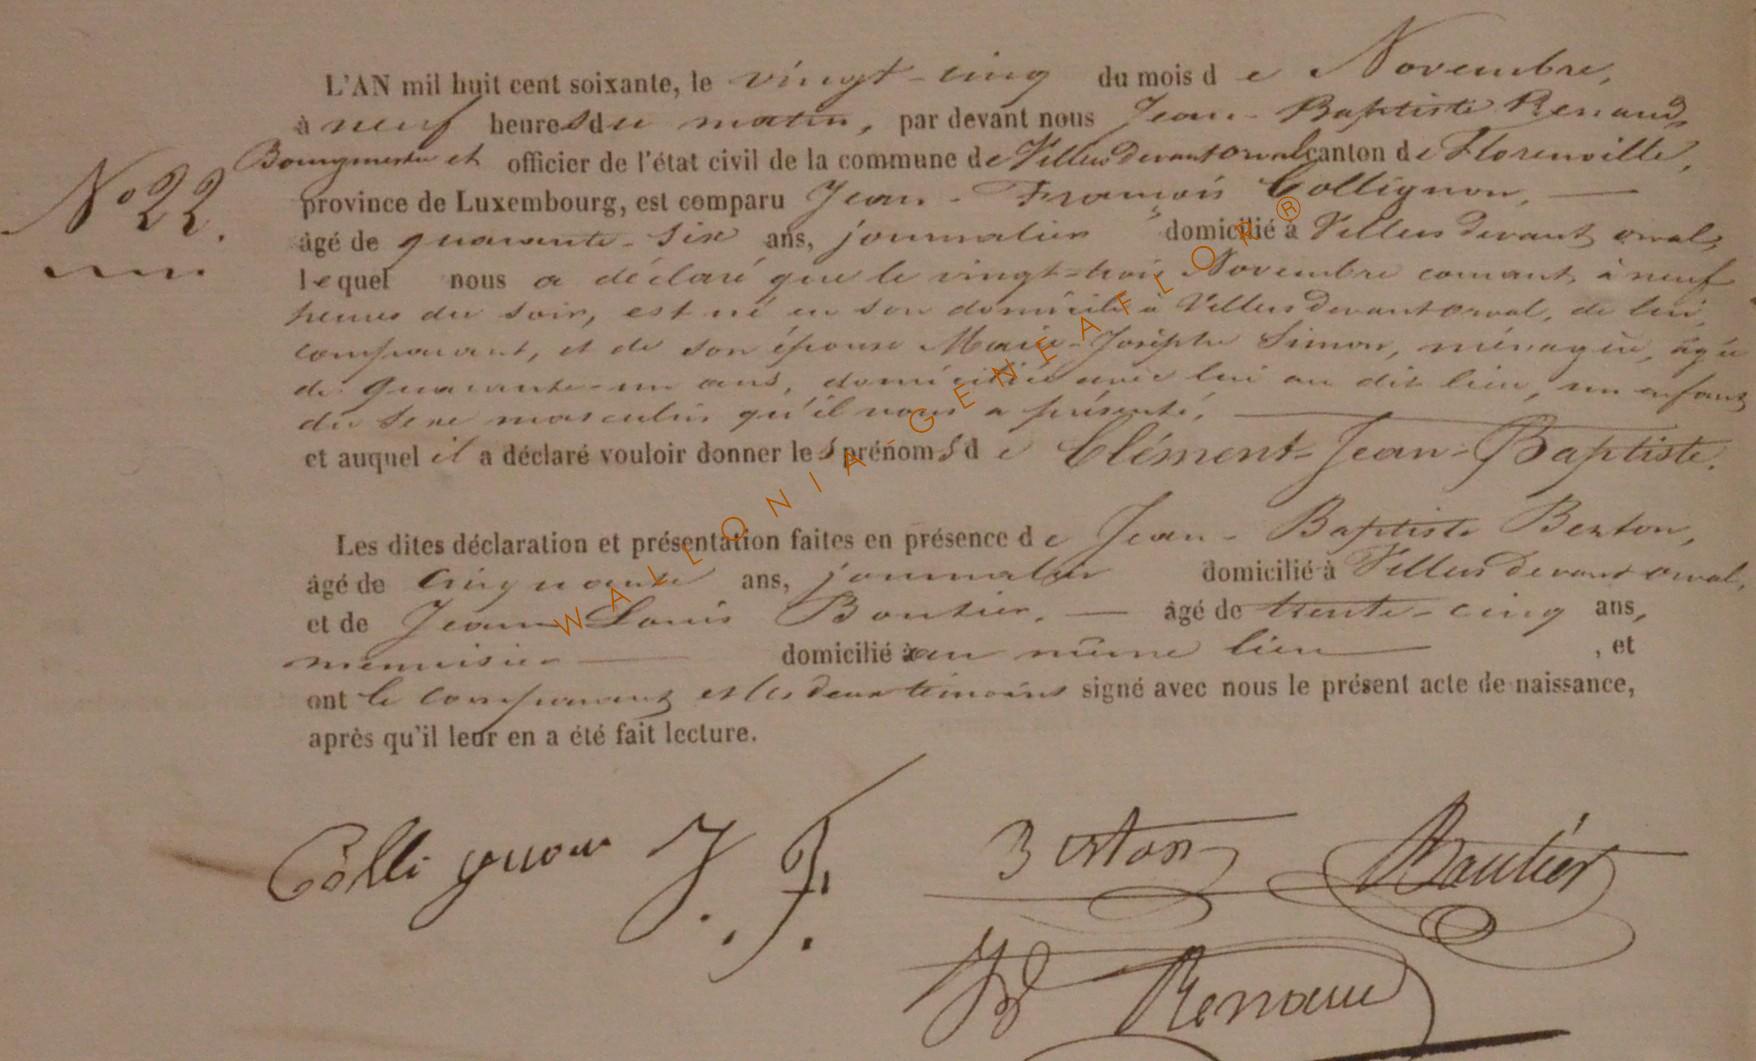 L'AN mil huit cent soixante, le vingt-cinq du mois de Novembre,
à neuf heures du matin, par devant nous Jean-Baptiste Renaud,
Bourgmestre et officier de l'état civil de la commune de Villers devant orval canton de Florenville,
N° 22.
province de Luxembourg, est comparu Jean-François Collignon,
âgé de quarante-six ans, journalier domicilié à Villers devant orval,
lequel nous a déclaré que le vingt-trois Novembre courant, à neuf
heures du soir, est né en son domicile à Villers devant orval, de lui,
comparant, et de son épouse Marie-Josèphe Simon, ménagère, âgée
de quarante-un ans, domiciliée avec lui au dit lieu, un enfant
du sexe masculin qu'il nous a présenté,
et auquel il a déclaré vouloir donner les prénoms de Clément-Jean-Baptiste.
Les dites déclaration et présentation faites en présence de Jean-Baptiste Berton,
âgé de cinquante ans, journalier domicilié à Villers devant orval,
et de Jean Louis Boutier, âgé de trente-cinq ans,
menuisier domicilié au même lieu, et
ont le comparant et les deux témoins signé avec nous le présent acte de naissance,
après qu'il leur en a été fait lecture.
Collignon J. F. Berton Bautier
JB Renaud
WALLONIA-GENEAFLOR®